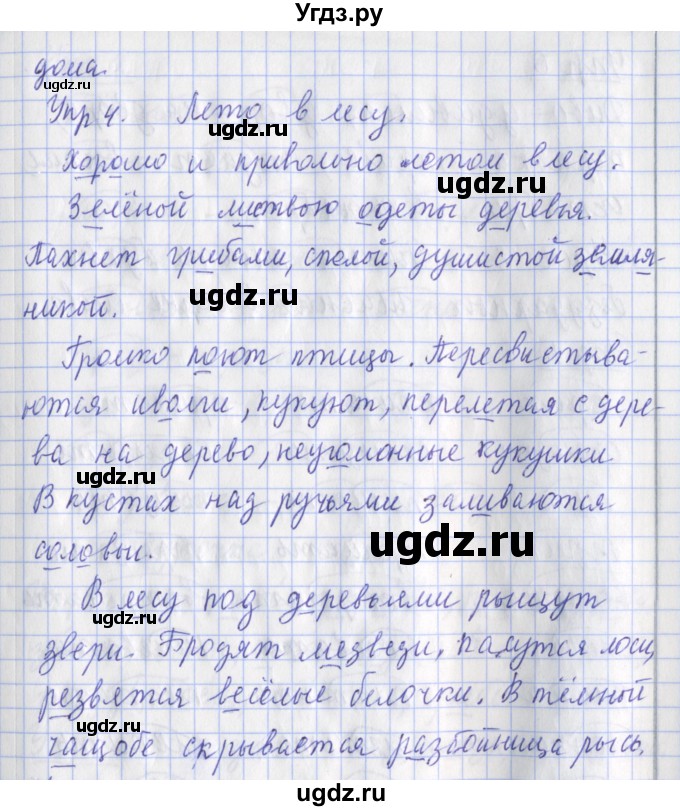 Угдз.ру
дома.
ugdz.ru
Упр 4. Лето в лесу.
ugdz.ru
Хорошо и привольно летом в лесу.
ugdz.ru ugdz.ru
Зелёной листвою одеты деревья.
Пахнет грибами, спелой, душистой земля-
ugdz.ru ugdz.ru
никой.
Громко поют птицы. Пересвистыва-
ются иволги, кукуют, перелетая с дере-
ва на дерево, неугомонные кукушки
ugdz.ru
В кустах над ручьями заливаются
ugdz.ru
соловьи.
В лесу под деревьями рыщут
ugdz.ru ugdz.ru
звери. Бродят медведи, пасутся лоси,
резвятся весёлые белочки. В тёмной
ugdz.ru
чащобе скрывается разбойница рысь.
ugdz.ru